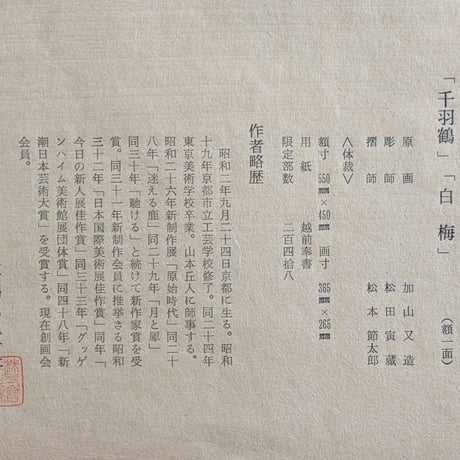 「千羽鶴」「白梅」
（額一面）
原画　加山又造
彫師　松田寅蔵
摺師　松本節太郎
〈体裁〉
額寸　550㎜×450㎜　画寸　365㎜×265㎜
用紙　越前奉書
限定部数　二百四拾八
作者略歴
昭和二年九月二十四日京都に生る。昭和
十九年京都市立工芸学校修了。同二十四年
東京美術学校卒業。山本丘人に師事する。
昭和二十六年新制作展「原始時代」同二十
八年「迷える鹿」同二十九年「月と犀」
同三十年「駈ける」と続けて新作家賞を受
賞。同三十一年新制作会員に推挙さる昭和
三十二年「日本国際美術展佳作賞」同年「
今日の新人展佳作賞」同三十三年「グッゲ
ンハイム美術館展団体賞」同四十八年「新
潮日本芸術大賞」を受賞する。現在創画会
会員。